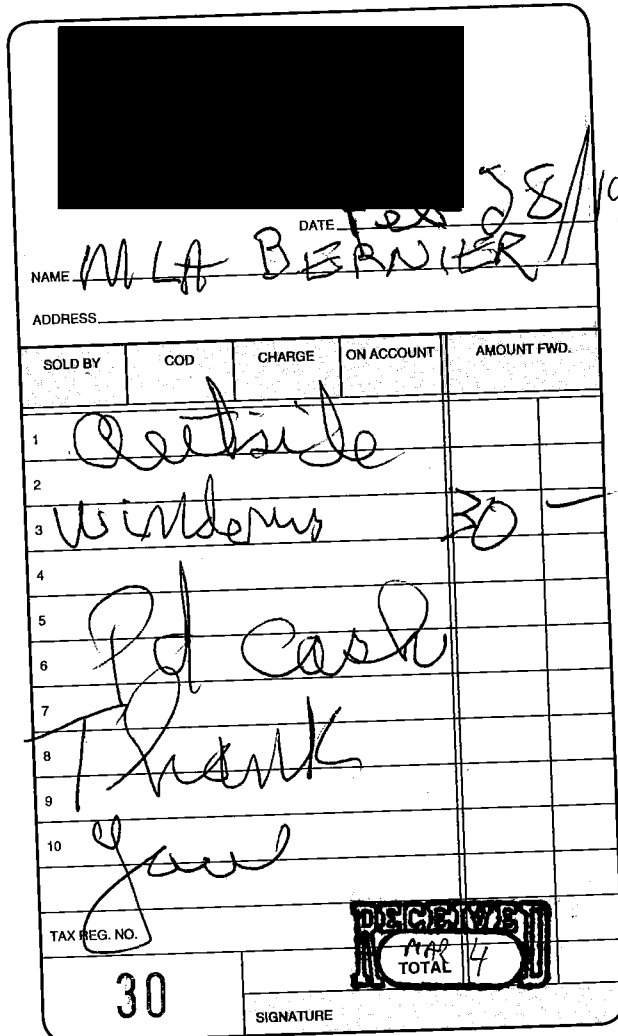 DATE Feb 28/19
NAME MLA BERNIER
ADDRESS
SOLD BY COD CHARGE ON ACCOUNT AMOUNT FWD.
1 Outside
2
3 windows 30 —
4
5
6 Pd cash
7
8 Thank
9
10 you
TAX REG. NO.
RECEIVED
MAR 4
TOTAL
30
SIGNATURE